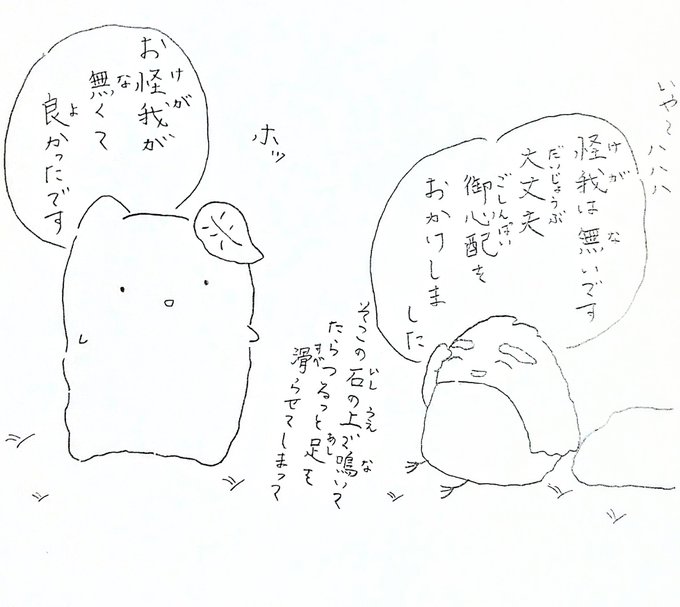 いや〜ハハハ
怪我は無いです
大丈夫
御心配を
おかけしま
した
そこの石の上で鳴いて
たらつるっと足を
滑らせてしまって
ホッ
お怪我が
無くて
良かったです